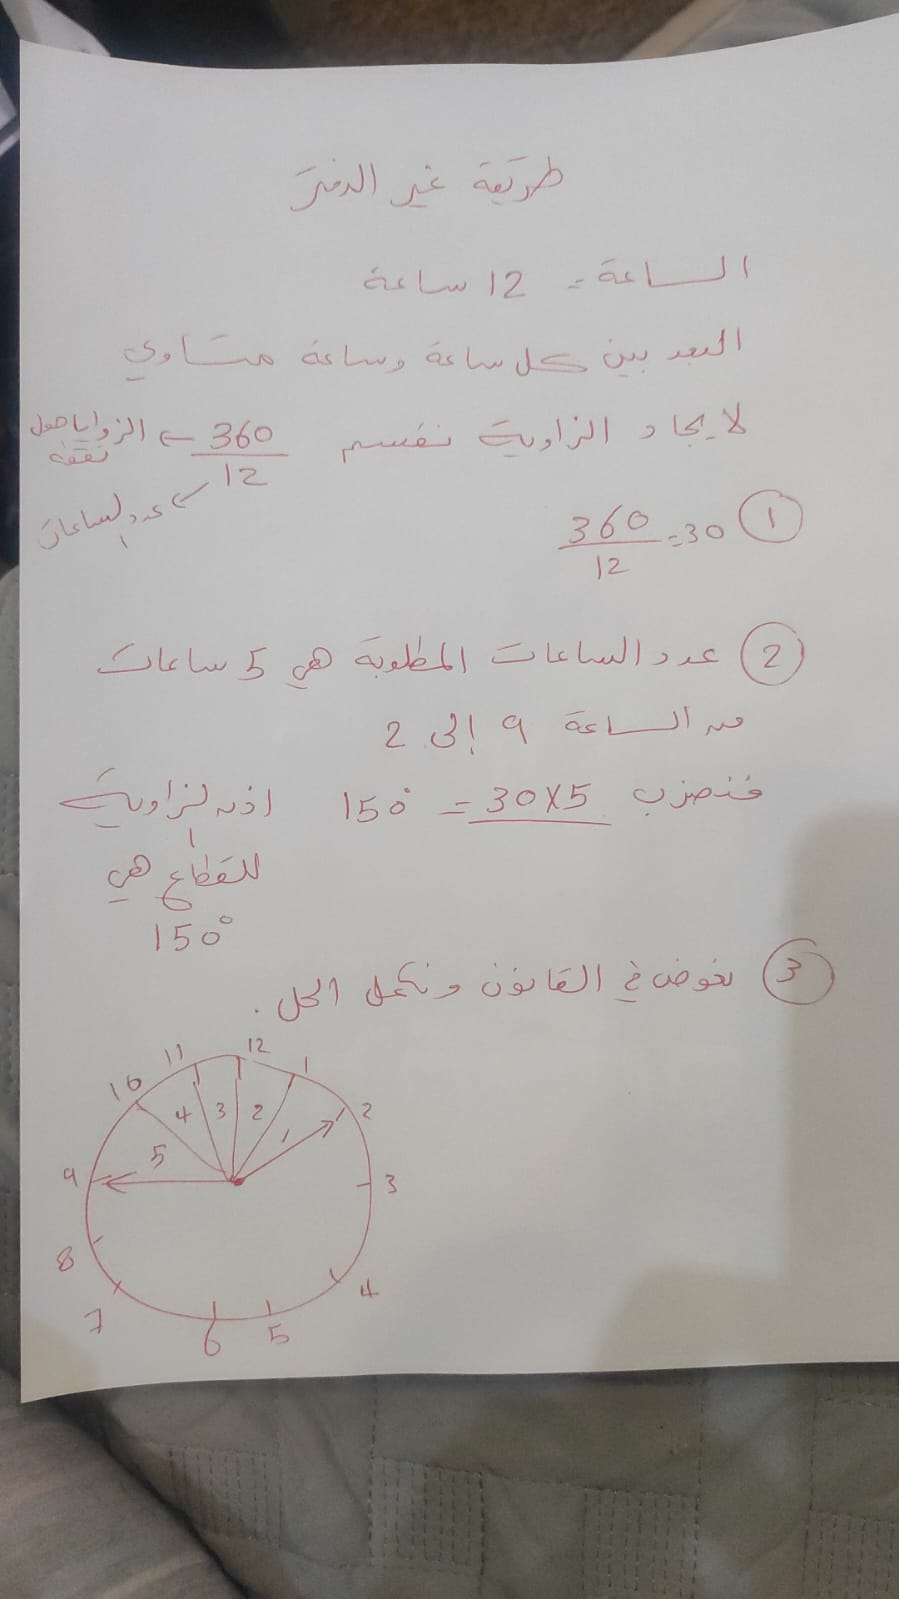 طريقة غير الدفتر
الساعة = 12 ساعة
البعد بين كل ساعة وساعة متساوي
لايجاد الزاوية نقسم 360/12
← الزوايا حول نقطة
← عدد الساعات
① 360/12 = 30
② عدد الساعات المطلوبة هي 5 ساعات
من الساعة 9 إلى 2
فنضرب 30X5 = 150° اذن الزاوية
للقطاع هي
150°
③ نعوض في القانون ونكمل الحل.
12
11
1
10
2
4 3 2
1
5
9
3
8
4
7
6
5